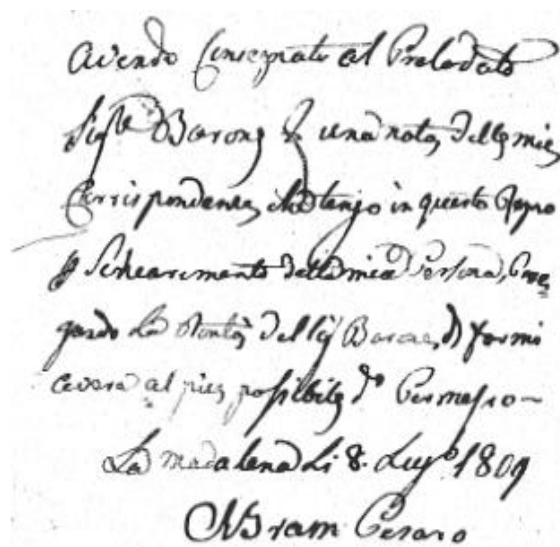 avendo Consegnato al Prelodato
Sig.re Barone una nota delle mie
Corrispondenze che tengo in questo Regno
p Schiarimento della mia Persona, Pre=
gando la Bontà del Sig Barone, di farmi
avere al più possibile do Permesso
La madalena Li 8. Lug.o 1809
Abram Cesaro